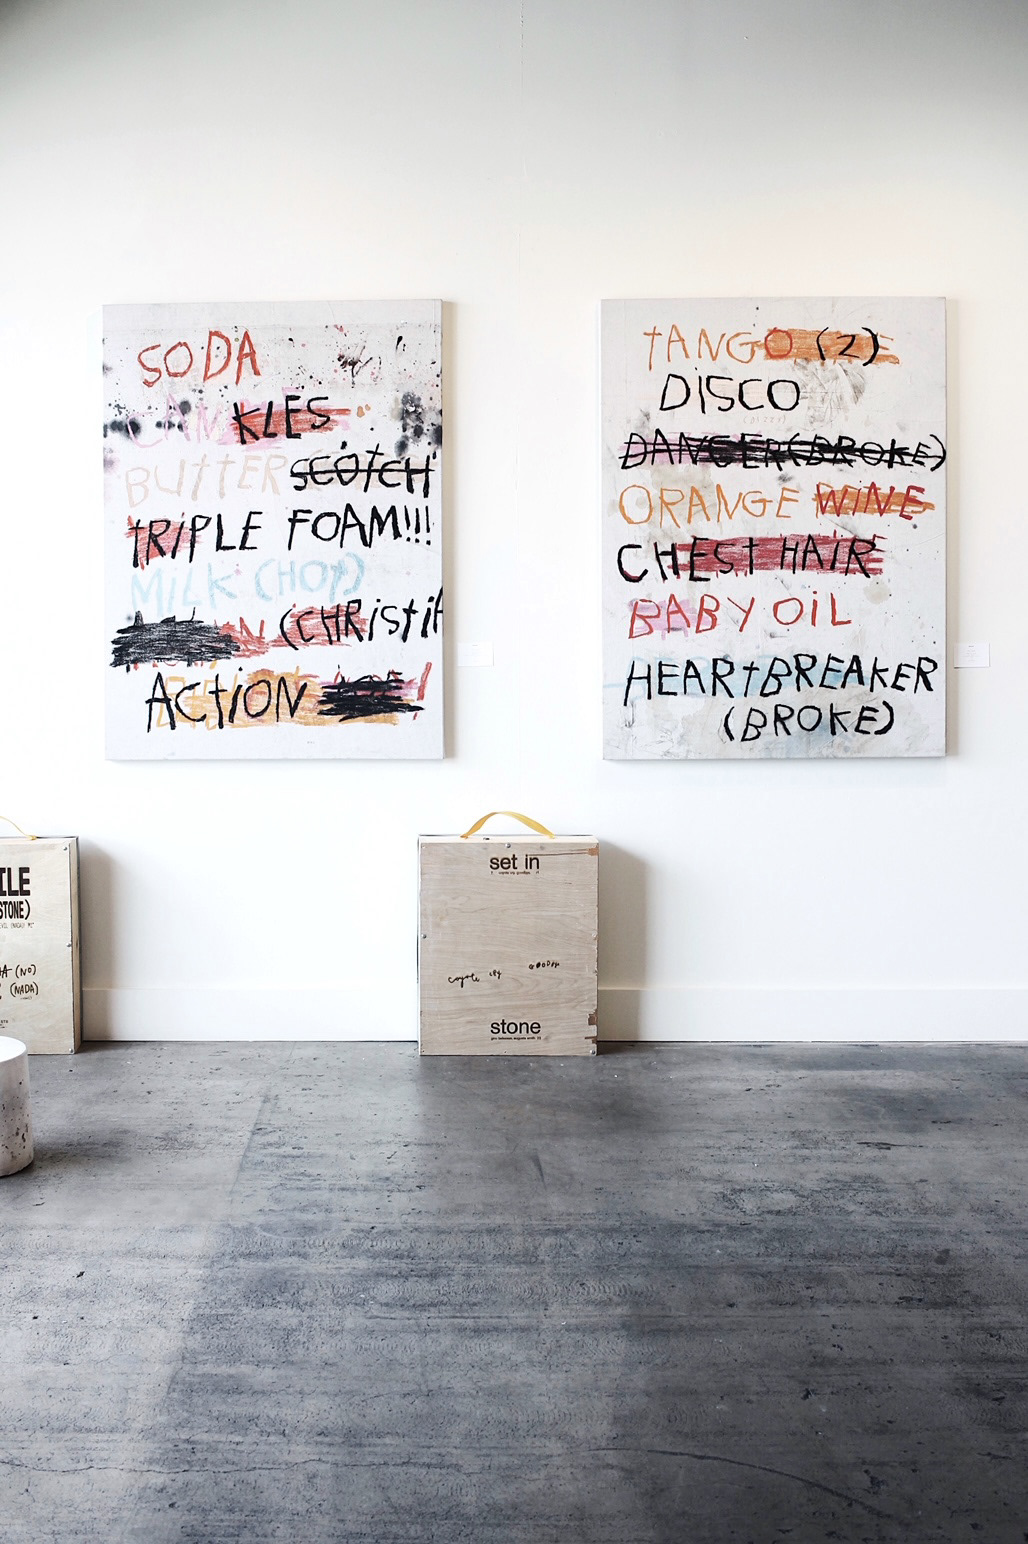 SODA
KLES
BUTTER SCOTCH
TRIPLE FOAM!!!
MILK (HOT)
(CHRISTIA
ACTION
TANGO (2)
DISCO
DANGER (BROKE)
ORANGE WINE
CHEST HAIR
BABY OIL
HEARTBREAKER
(BROKE)
ILE
STONE)
(NO)
(NADA)
set in
coyote cry GOODBYE
stone